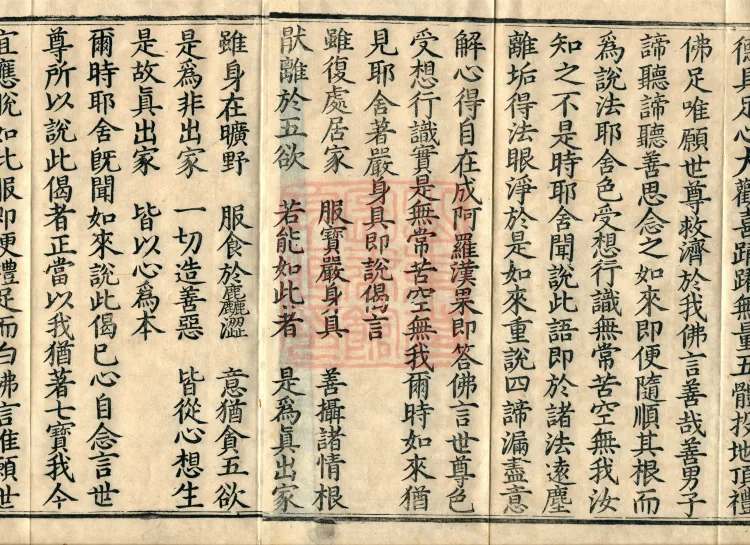 德具足心大歡喜踊躍無量五體投地頂禮
佛足唯願世尊救濟於我佛言善哉善男子
諦聽諦聽善思念之如來即便隨順其根而
爲說法耶舍色受想行識無常苦空無我汝
知之不是時耶舍聞說此語即於諸法遠塵
離垢得法眼淨於是如來重說四諦漏盡意
解心得自在成阿羅漢果即答佛言世尊色
受想行識實是無常苦空無我爾時如來猶
見耶舍著嚴身具即說偈言
雖復處居家　服寶嚴身具　善攝諸情根
猒離於五欲　若能如此者　是爲眞出家
雖身在曠野　服食於麤澀　意猶貪五欲
是爲非出家　一切造善惡　皆從心想生
是故眞出家　皆以心爲本
爾時耶舍旣聞如來說此偈已心自念言世
尊所以說此偈者正當以我猶著七寶我今
宜應脫如此服即便禮足而白佛言唯願世